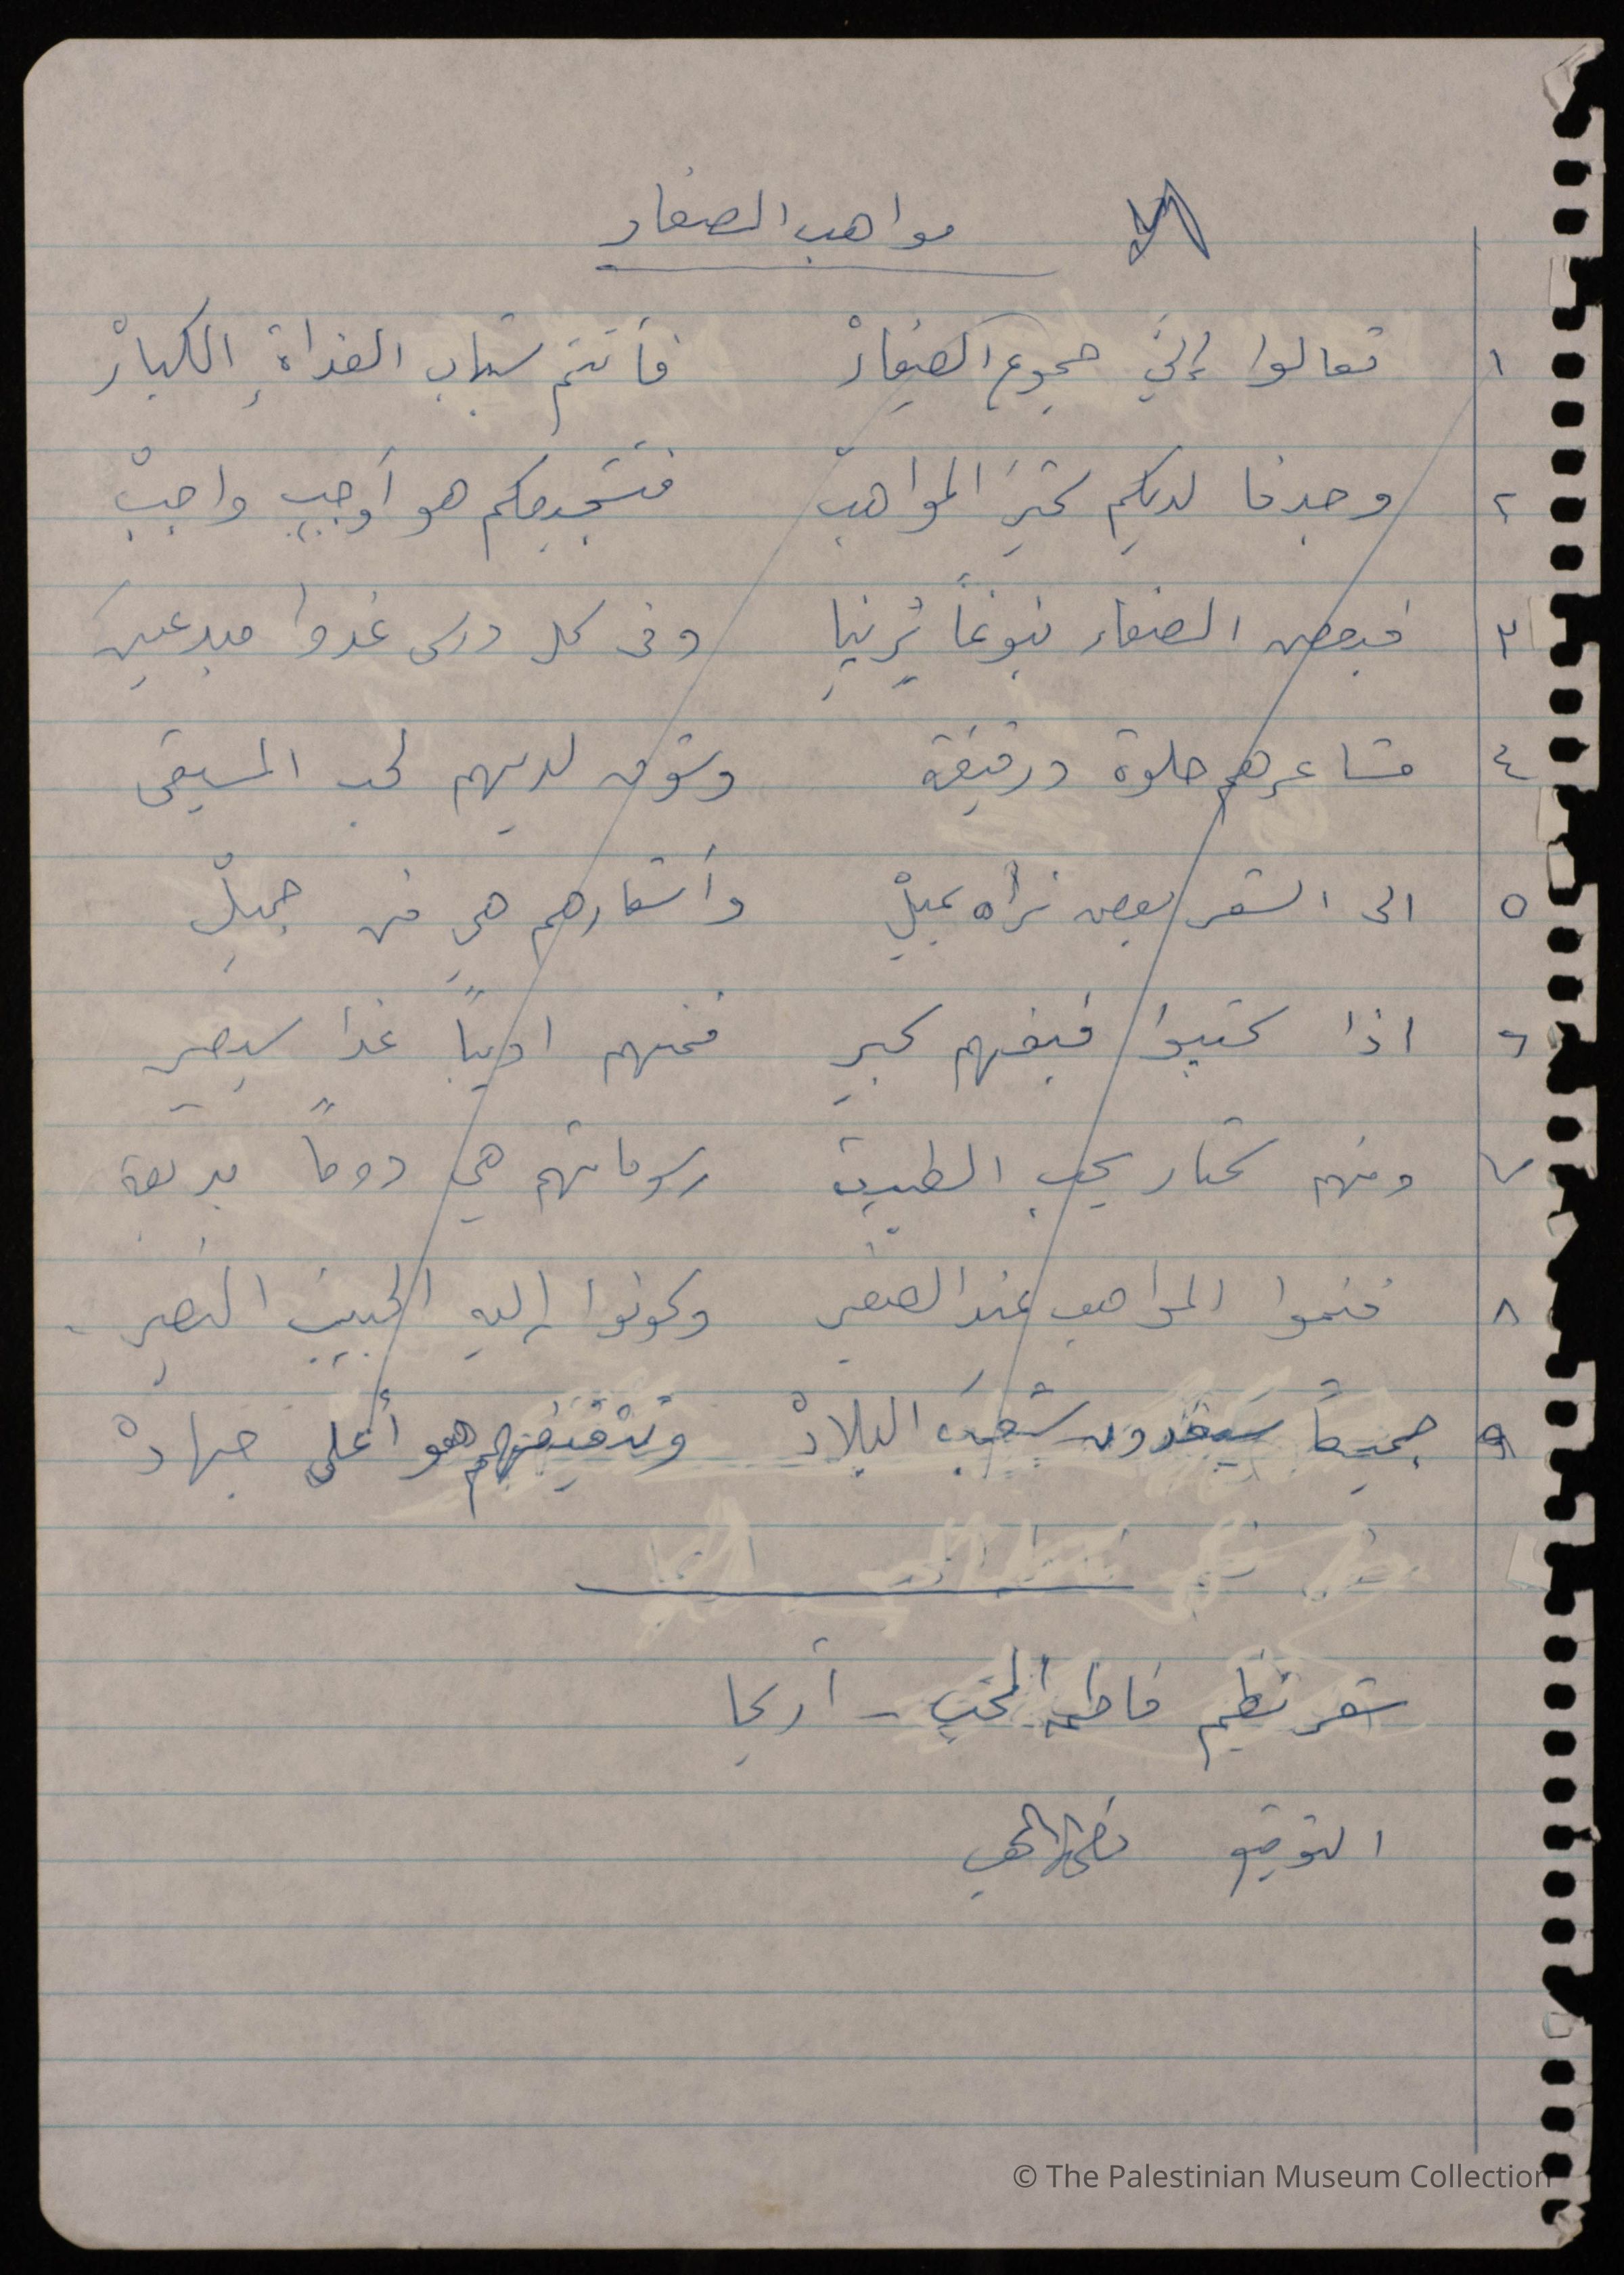 مواهب الصغار
١ تعالوا إليَّ جموع الصغارْ فأنتم شباب الغداةِ الكبارْ
٢ وجدنا لديكم كثيرَ المواهبْ فتشجيعكم هو أوجب واجبْ
٣ فبعض الصغار نبوغاً يُرينا وفي كل درس غدوا مبدعين
٤ مشاعرهم حلوة ورقيقة وشوق لديهم لحب المسيقى
٥ الى الشعر بعض نراه يميلْ وأشعارهم هي فن جميلْ
٦ اذا كتبوا فنبغهم كبير فمنهم اديباً غدا سيصير
٧ ومنهم تختار يحب الطبيعة رسوماتهم هي دوماً بديعة
٨ فنموا المواهب عند الصغير وكونوا إليه الحبيب النصير.
٩ جميعاً سيغدون شعبَ البلادْ وتثقيفهم هو أعلى جهادْ
شعر نظم فاطمة المحب - أريحا
التوقيع
© The Palestinian Museum Collection